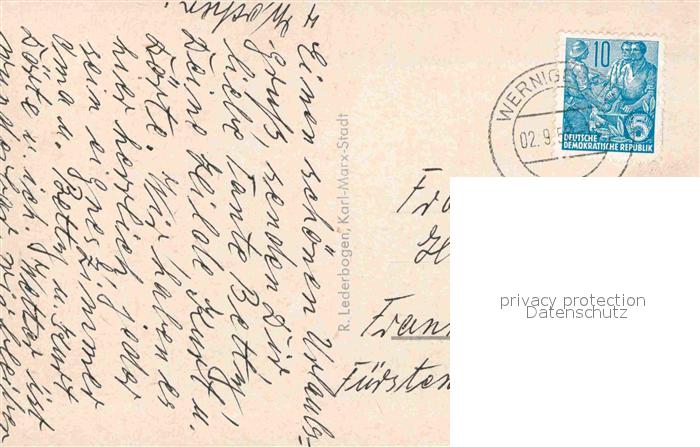 Einen schönen Urlaubs-
gruß senden Dir
liebe Tante Betty,
Deine Hilde Kurt u.
Dörte. Wir haben es
hier herrlich, jeder
sein eigenes Zimmer
Oma u. Betty u. Kurt
Dörte u. ich. Wetter ist
R. Lederbogen, Karl-Marx-Stadt
10
5
DEUTSCHE
DEMOKRATISCHE REPUBLIK
WERNIG
02.9.5
Fra
Fran
Fürsten
privacy protection
Datenschutz